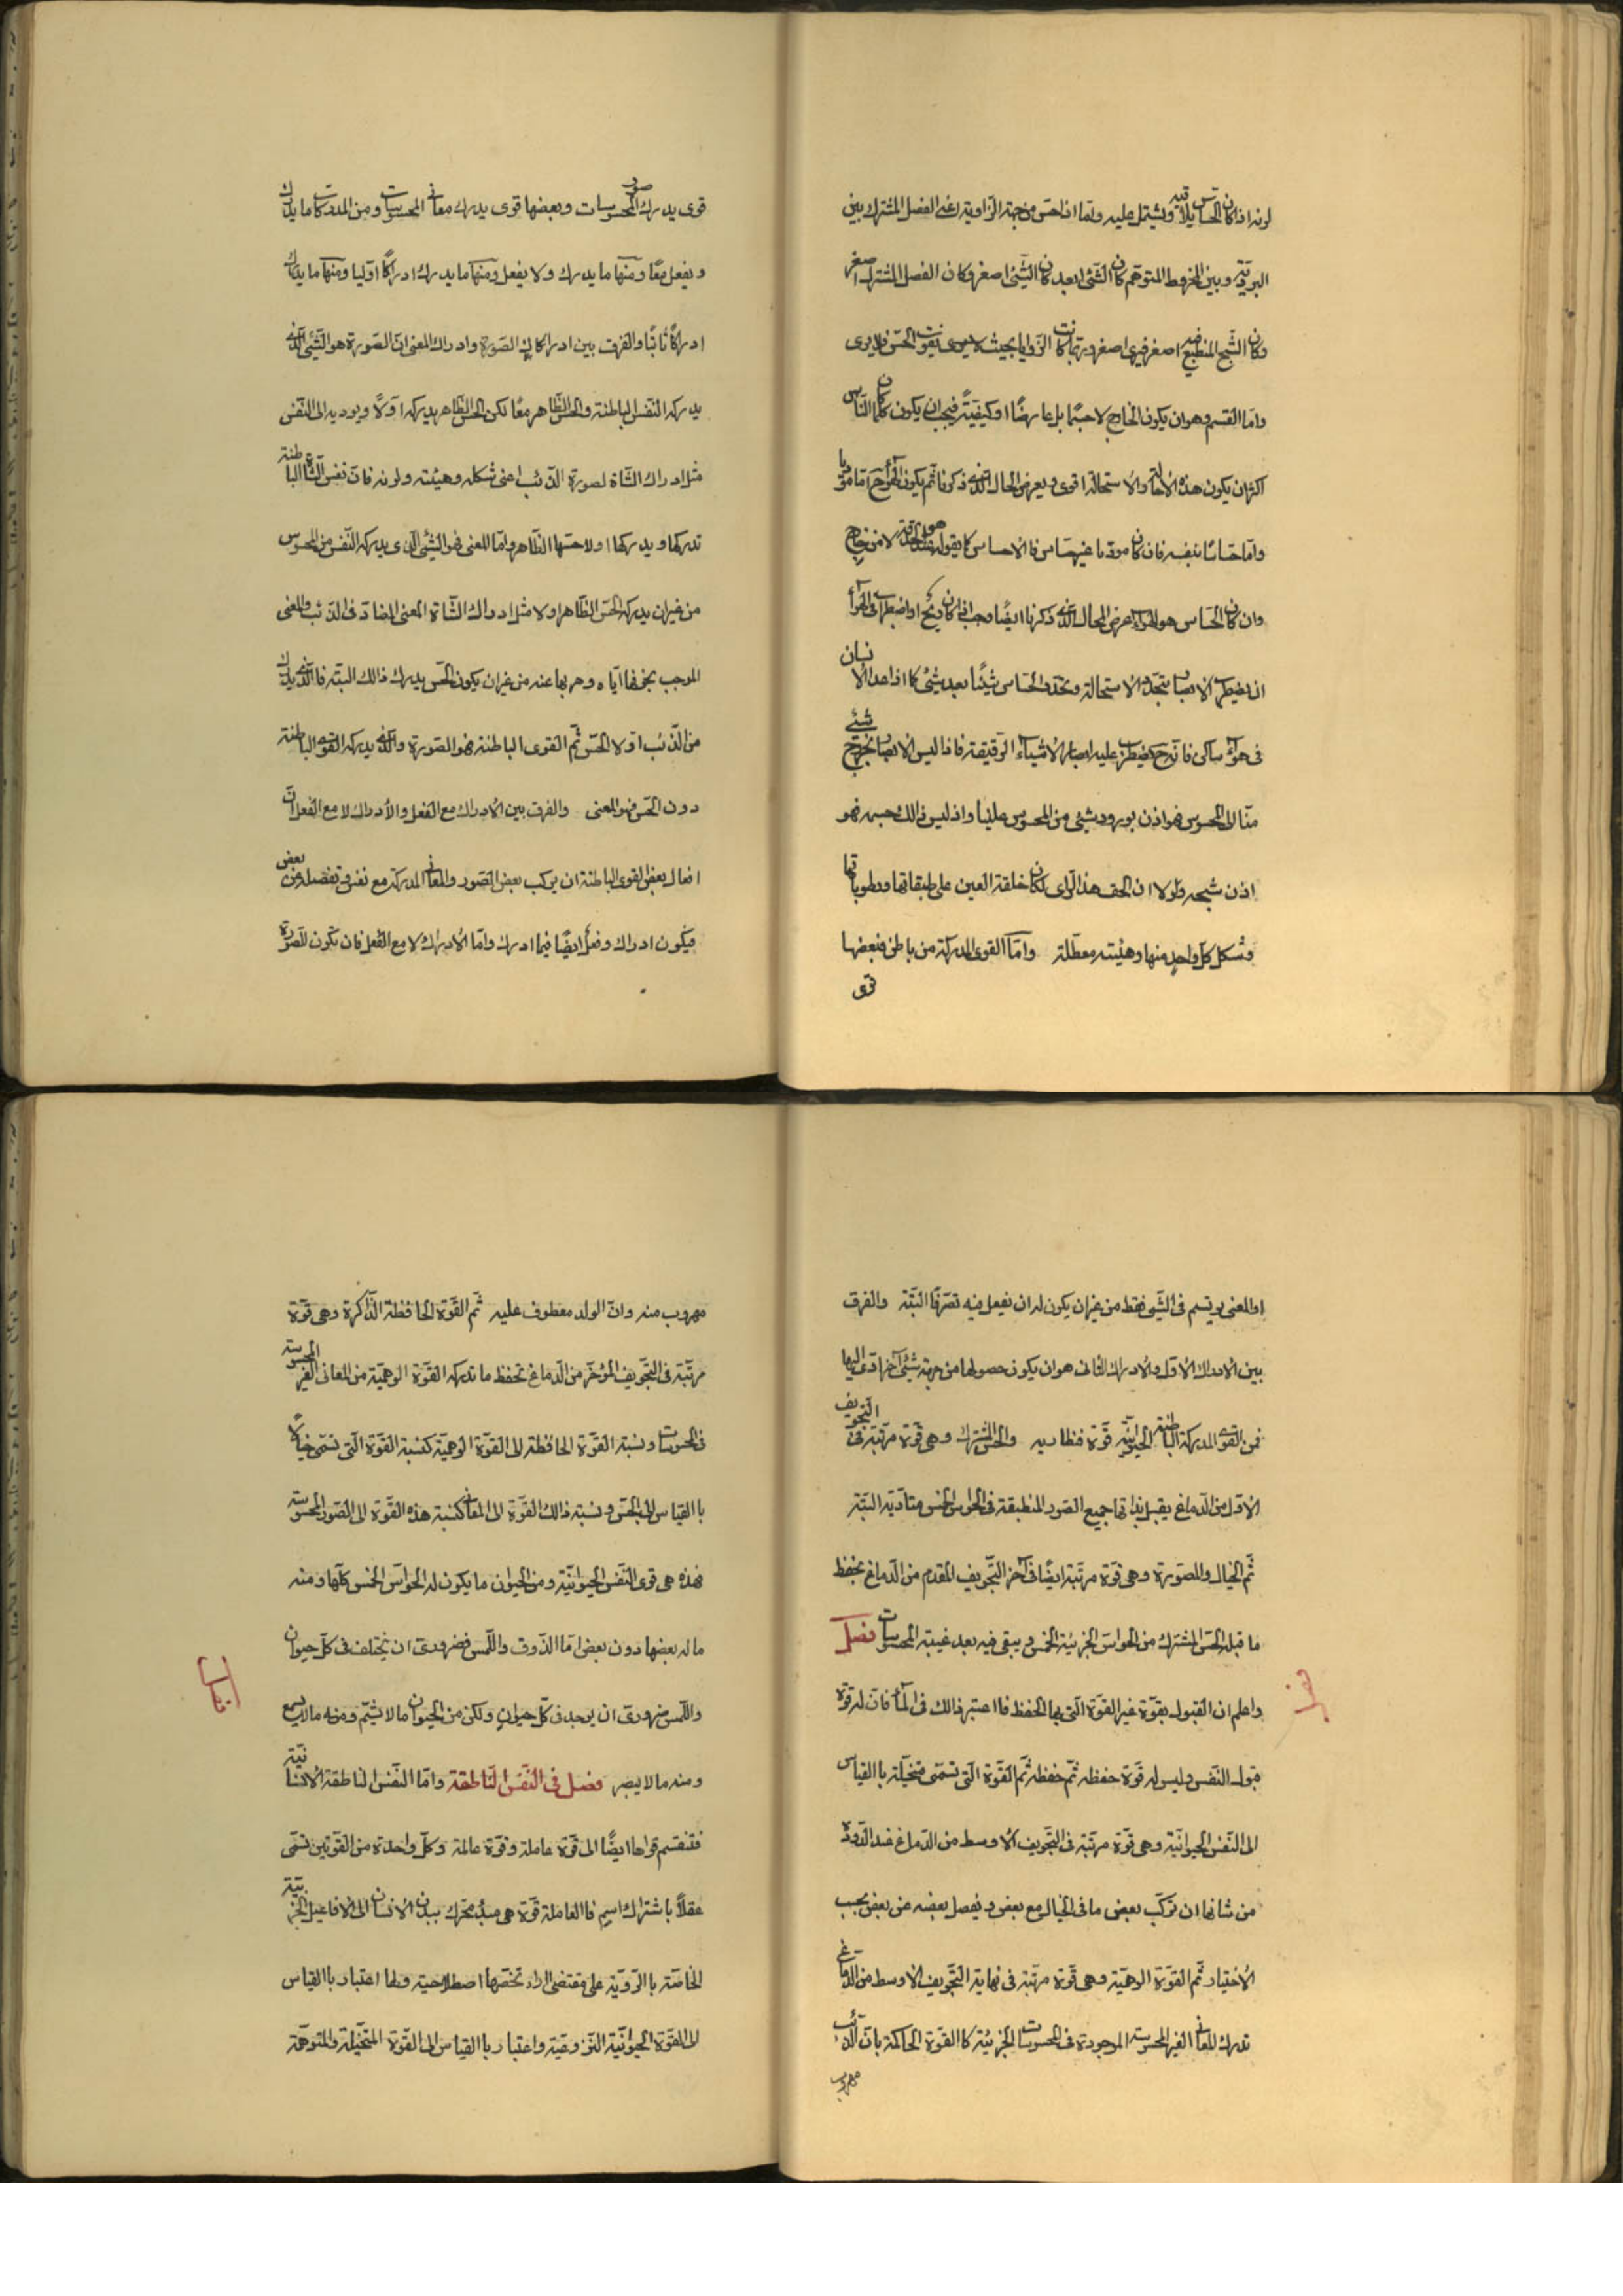 لونه اذا كان الحاس يلاقيه ويشتمل عليه واما اذا احس من جهة الزاوية اعنى الفصل المشترك بين
البردية وبين المخروط المتوهم كان الشئ ابعد كان الشئ اصغر وكان الفصل المشترك اصغر
وكان الشبح المنطبع فيه اصغر فيرى اصغر وربما كانت الزوايا بحيث تفوت الحس فلا يرى
واما القسم وهو ان يكون الخارج لا جسما بل عارضا او كيفية فيجب ان يكون كلما كان الناس
اكثر ان يكون هذه الاحالة والاستحالة اقوى ويعرض المحال الذى ذكرنا ثم يكون الهواء حرا ما مؤديا
واما حساسا بنفسه فان كان مؤديا غير حساس فالاحساس كما يقوله هو عند الحدقة لا من خارج
وان كان الحساس هو الهواء عرض المحال الذى ذكرنا ايضا وجب اذا كان ريح او اضطراب فى الهواء
ان يضطرب الابصار بتجدد الاستحالة وتجدد الحساس شيئا بعد شئ كما اذا عدا الانسان
فى هواء ساكن فانه ح يضطرب عليه ابصار الاشياء الرقيقة فاذا ليس الابصار بخروج شئ
منا الى المحسوس فهو اذن بورود شئ من المحسوس علينا واذ ليس ذالك جسمه فهو
اذن شبحه ولولا ان الحق هذا الراى لكان خلقة العين على طبقاتها ورطوباتها
وشكل كل واحد منها وهيئته معطلة واما القوى المدركة من باطن فبعضها
قوى
قوى يدرك صور المحسوسات وبعضها قوى يدرك معانى المحسوسات ومن المدركات ما يدرك
ويفعل معا ومنها ما يدرك ولا يفعل ومنها ما يدرك ادراكا اوليا ومنها ما يدرك
ادراكا ثانيا والفرق بين ادراك الصورة وادراك المعنى ان الصورة هو الشئ الذى
يدركه النفس الباطنة والحس الظاهر معا لكن الحس الظاهر يدركه اولا ويوديه الى النفس
مثل ادراك الشاة لصورة الذئب اعنى شكله وهيئته ولونه فان نفس الشاة الباطنة
تدركها ويدركها اولا حسها الظاهر واما المعنى فهو الشئ الذى يدركه النفس من المحسوس
من غير ان يدركه الحس الظاهر اولا مثل ادراك الشاة المعنى المضاد فى الذئب والمعنى
الموجب بخوفها اياه وهربها عنه من غير ان يكون الحس يدرك ذالك البتة فالذى يدرك
من الذئب اولا الحس ثم القوى الباطنة فهو الصورة والذى يدركه القوى الباطنة
دون الحس فهو المعنى والفرق بين الادراك مع الفعل والادراك لا مع الفعل ان
افعال بعض القوى الباطنة ان يركب بعض الصور والمعانى المدركة مع بعض وتفصله عن بعض
فيكون ادراك وفعل ايضا فيما ادرك واما الادراك لا مع الفعل فان تكون للصورة
او المعنى يرتسم فى الشئ فقط من غير ان يكون له ان يفعل فيه تصرفا البتة والفرق
بين الادراك الاول والادراك الثانى هو ان يكون حصولها من جهة شئ آخر ادى اليها
فمن القوى المدركة الباطنة الحيوانية قوة فنطاسيه والحس المشترك وهى قوة مرتبة فى التجويف
الاول من الدماغ يقبل بذاتها جميع الصور المنطبقة فى الحواس الخمس متأدية البتة
ثم الخيال والمصورة وهى قوة مرتبة ايضا فى آخر التجويف المقدم من الدماغ يحفظ
ما قبله الحس المشترك من الحواس الجزئية الخمس ويبقى فيه بعد غيبة المحسوسات فصل
واعلم ان القبول بقوة غير القوة التى بها الحفظ فاعتبر ذالك فى الماء فان له قوة
قبول النفس وليس له قوة حفظه ثم حفظه ثم القوة التى تسمى متخيلة باالقياس
الى النفس الحيوانية وهى قوة مرتبة فى التجويف الاوسط من الدماغ عند الدودة
من شانها ان تركب بعض ما فى الخيال مع بعض ويفصل بعضه عن بعض بحسب
الاختيار ثم القوة الوهمية وهى قوة مرتبة فى نهاية التجويف الاوسط من الدماغ
تدرك المعانى الغير المحسوسة الموجودة فى المحسوسات الجزئية كاالقوة الحاكمة بان الذئب
مهروب
مهروب منه وان الولد معطوف عليه ثم القوة الحافظة الذاكرة وهى قوة
مرتبة فى التجويف المؤخر من الدماغ تحفظ ما تدركه القوة الوهمية من المعانى الغير المحسوسة
فى المحسوسات ونسبة القوة الحافظة الى القوة الوهمية كنسبة القوة التى تسمى خيالا
باالقياس الى الحس ونسبة ذالك القوة الى المعانى كنسبة هذه القوة الى الصور المحسوسة
فهذه هى قوى النفس الحيوانية ومن الحيوان ما يكون له الحواس الخمس كلها ومنه
ما له بعضها دون بعض اما الذوق واللمس فضرورى ان يختلف فى كل حيوان
واللمس ضرورى ان يوجد فى كل حيوان ولكن من الحيوان ما لا يشم ومنه ما لا يسمع
ومنه ما لا يبصر فصل فى النفس الناطقة واما النفس الناطقة الانسانية
فتنقسم قواها ايضا الى قوة عاملة وقوة عالمة وكل واحدة من القوتين تسمى
عقلا باشتراك اسم فاالعاملة قوة هى مبدء محرك ببدن الانسان الى الافاعيل الجزئية
الخاصة باالروية على مقتضى اراء تخصها اصطلاحية ولها اعتبار باالقياس
الى القوة الحيوانية النزوعية واعتبار باالقياس الى القوة المتخيلة والمتوهمة